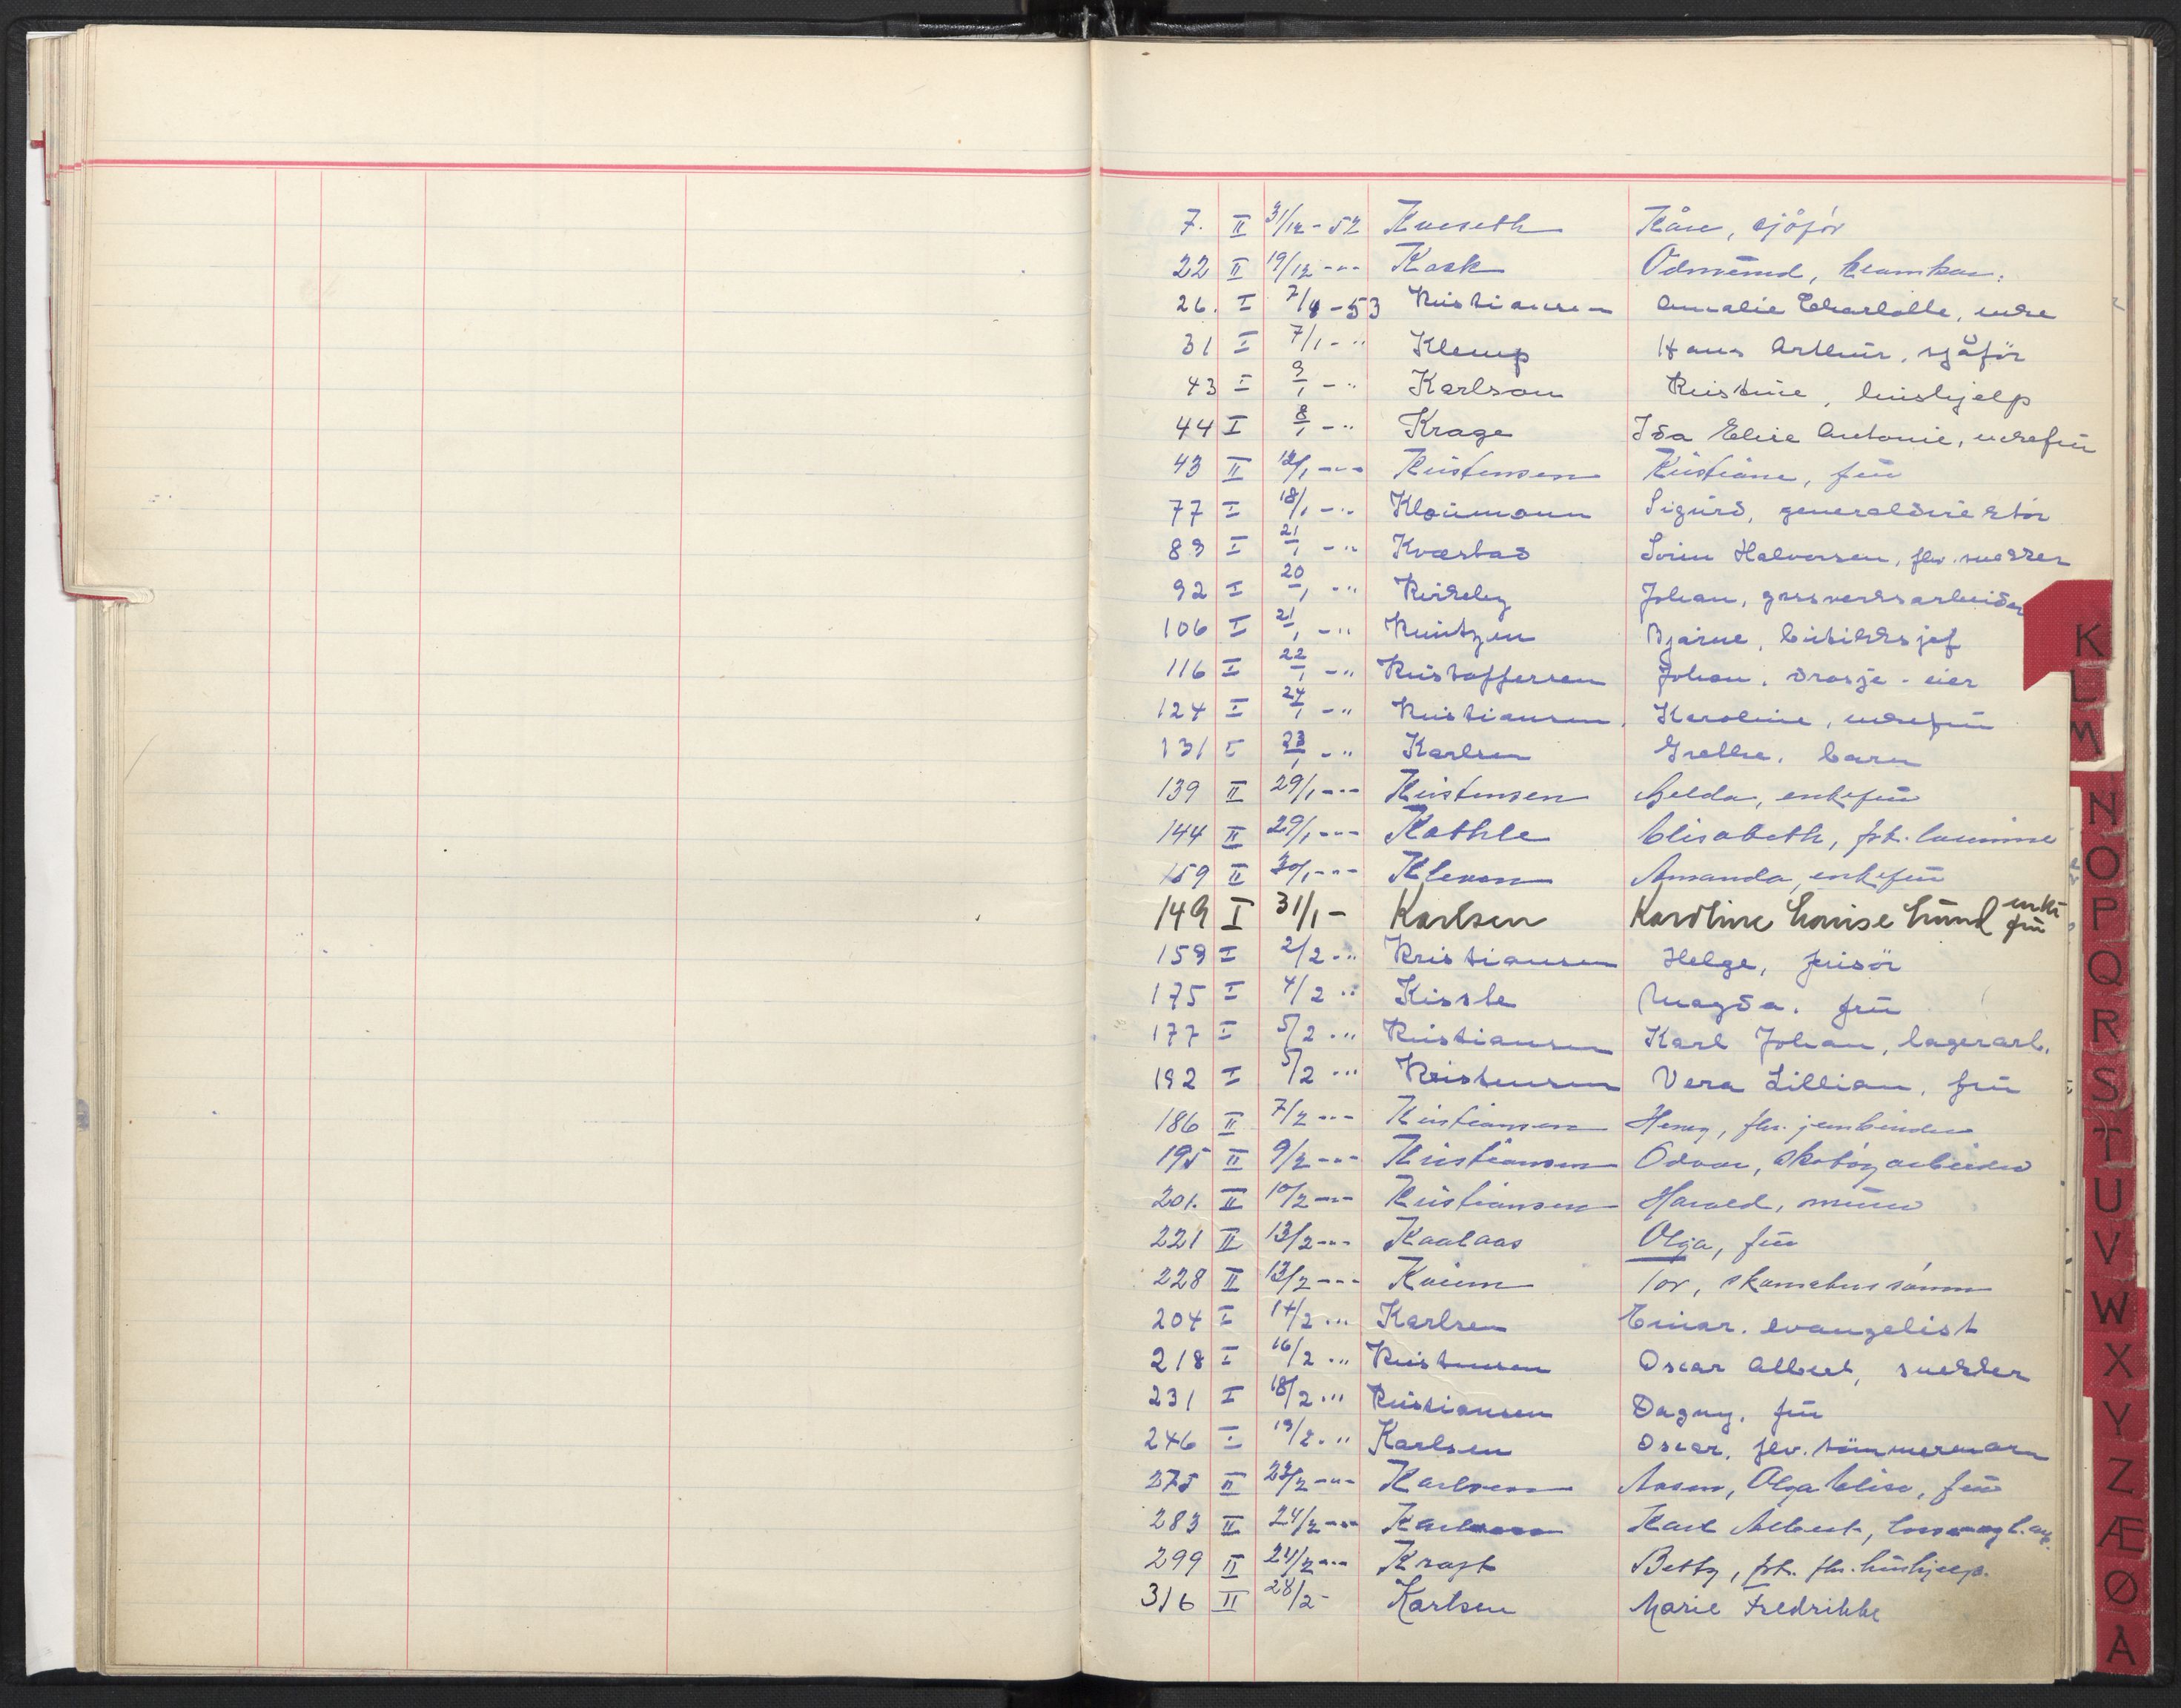 7. II 31/12 - 52 Kåre, sjåfør
22 II 19/12 - " - Kask Ødmund,
26. I 7/1 - 53 Kristiansen Amalie Charlotte, enke
31 I 7/1 - " Klemp Hans Arthur, sjåfør
43 I 9/1 - " Karlson Kristine, hushjelp
44 I 8/1 - " Krage Ida Elise Antonie, enkefru
43 II 12/1 - " - Kristensen Kristiane, fru
77 I 18/1 - " Kloumann Sigurd, generaldirektør
89 I 21/1 - " Kværstad Halvorsen, fhv. snekker
92 I 20/1 - " Kirkeby Johan, gassverksarbeider
106 I 21/1 - " Kuntzen Bjarne, butikksjef
116 I 22/1 - " Kristoffersen Johan, drosje-eier
124 I 24/1 - " Kristiansen, Karoline, enkefru
131 I 23/1 - " Karlsen Grethe, barn
139 II 29/1 - " - Kristensen Helda, enkefru
144 II 29/1 - " - Kathle Elisabeth, frk. lærerinne
159 II 30/1 - " - Kleven Amanda, enkefru
149 I 31/1 - Karlsen Karoline Lovise Lund enkefru
159 I 2/2 - " Kristiansen Helge, frisør
175 I 4/2 " Kisste Magda, fru
177 I 5/2 - " Kristiansen Karl Johan, lagerarb.
192 I 5/2 - " Kristensen Vera Lillian, fru
186 II 7/2 - " - Kristiansen Henry, fhv. jernbinder
195 II 9/2 - " - Kristiansen Odvar, skotøyarbeider
201. II 10/2 - " - Kristiansen Harald, murer
221 II 13/2 - " - Kaalaas Olga, fru
228 II 13/2 - " - Tor,
204 I 14/2 - " Karlsen Einar, evangelist
218 I 16/2 - " Kristensen Oscar Albert, snekker
231 I 18/2 - " Kristiansen Dagny, fru
246 I 19/2 - " Karlsen Oscar, fhv. tømmermann
275 II 23/2 - " - Karlsen Aasen, Olga Elise, fru
283 II 24/2 - " - Karlsen Karl Albert,
299 II 24/2 - " - Kraft Betty, frk. fhv. hushjelp.
316 II 28/2 - Karlsen Marie Fredrikke
K
L
M
N
O
P
Q
R
S
T
U
V
W
X
Y
Z
Æ
Ø
Å